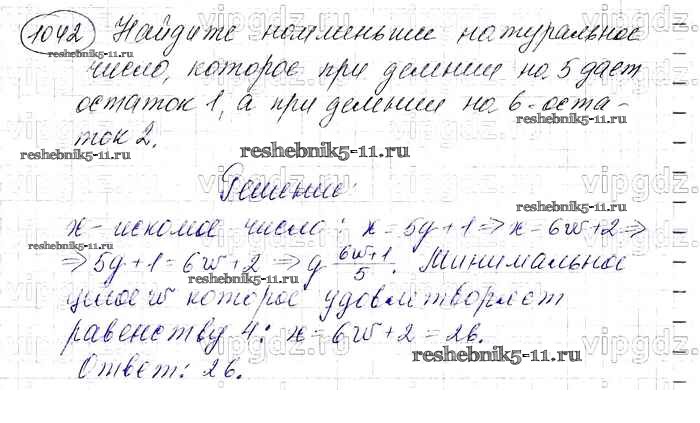 1042 Найдите наименьшее натуральное
число, которое при делении на 5 дает
остаток 1, а при делении на 6 - оста-
ток 2.
Решение:
x - искомое число: x = 5y + 1 => x = 6w + 2 =>
=> 5y + 1 = 6w + 2 => y 6w+1/5. Минимальное
целое w которое удовлетворяет
равенству 4: x = 6w + 2 = 26.
Ответ: 26.
reshebnik5-11.ru
reshebnik5-11.ru
reshebnik5-11.ru
reshebnik5-11.ru
reshebnik5-11.ru
reshebnik5-11.ru
reshebnik5-11.ru
reshebnik5-11.ru
vipgdz.ru